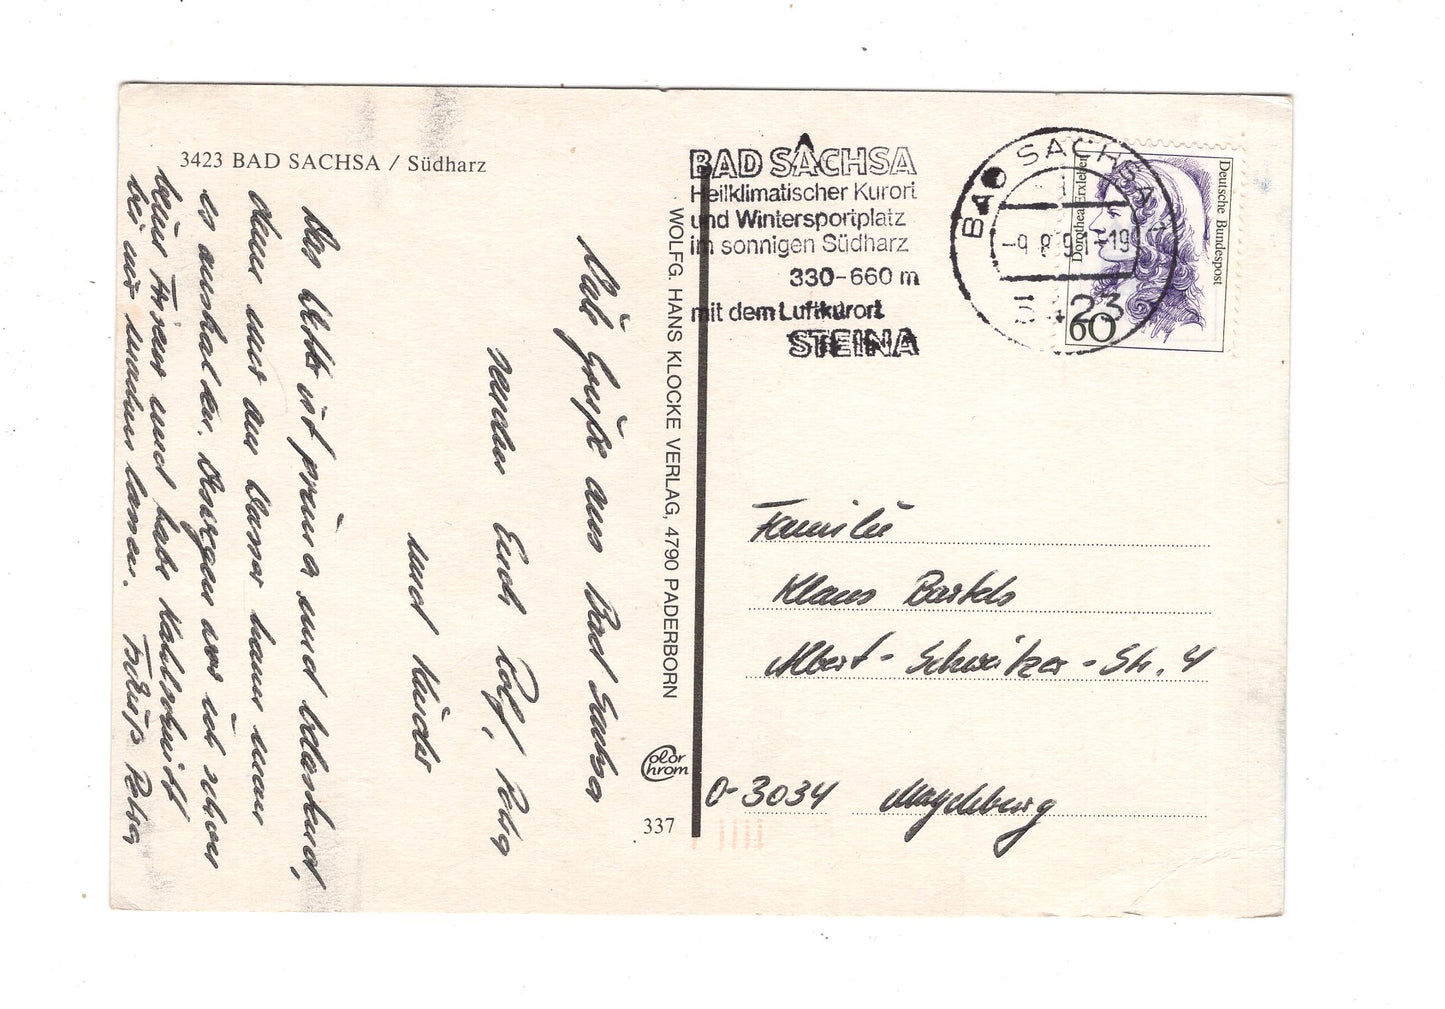 3423 BAD SACHSA / Südharz
Lieb Grüße aus Bad Sachsa
senden Euch Rolf, Petra
und Kinder
Das Wetter ist prima und
dann nur am Wasser kann man
es aushalten. Morgen war ich schon
beim Friseur und habe Kahlschnitt
bei mir machen lassen. Tschüß Petra
WOLFG. HANS KLOCKE VERLAG, 4790 PADERBORN
Color
Chrom
337
BAD SACHSA
Heilklimatischer Kurort
und Wintersportplatz
im sonnigen Südharz
330-660 m
mit dem Luftkurort
STEINA
BAD SACHSA 1
-9.8.91-19
3423
Deutsche Bundespost
Dorothea Erxleben
60
Familie
Klaus Bartels
Albert-Schweitzer-Str. 4
O-3034 Magdeburg